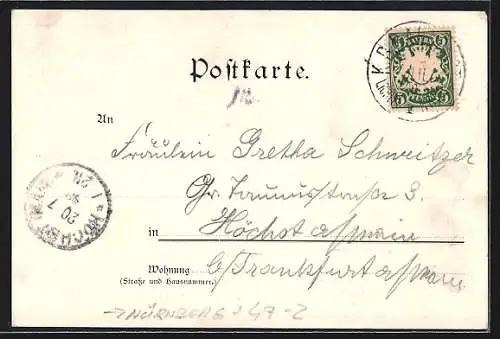 Postkarte.
BAYERN
5 5
5 5
PFENNIG
An
Fräulein Gretha Schweitzer
Gr. Taunusstraße 3
in Höchst a/Main
Wohnung
(Straße und Hausnummer)
b/Frankfurt a/Main
HÖCHST
20 7
1-2N
→ NÜRNBERG 47-2